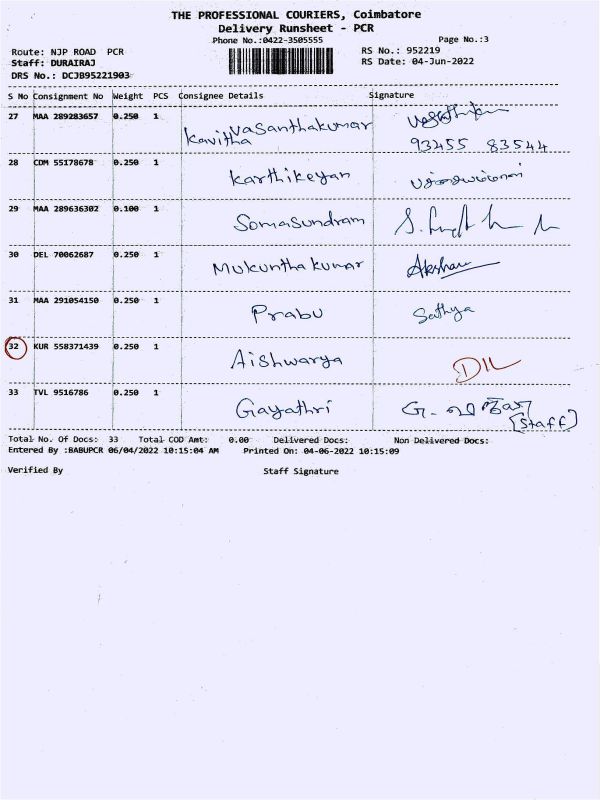 THE PROFESSIONAL COURIERS, Coimbatore
Delivery Runsheet - PCR
Phone No.:0422-3505555 Page No.:3
Route: NJP ROAD PCR RS No.: 952219
Staff: DURAIRAJ RS Date: 04-Jun-2022
DRS No.: DCJB95221903
S No Consignment No Weight PCS Consignee Details Signature
27 MAA 289283657 0.250 1 Vasanthakumar
Kavitha 93455 83544
28 CDM 55178678 0.250 1 Karthikeyan
29 MAA 289636302 0.100 1 Somasundram
30 DEL 70062687 0.250 1 Mukunthakumar Akshau
31 MAA 291054150 0.250 1 Prabu Sathya
32 KUR 558371439 0.250 1 Aishwarya DIL
33 TVL 9516786 0.250 1 Gayathri
(Staff)
Total No. Of Docs: 33 Total COD Amt: 0.00 Delivered Docs: Non Delivered Docs:
Entered By :BABUPCR 06/04/2022 10:15:04 AM Printed On: 04-06-2022 10:15:09
Verified By Staff Signature